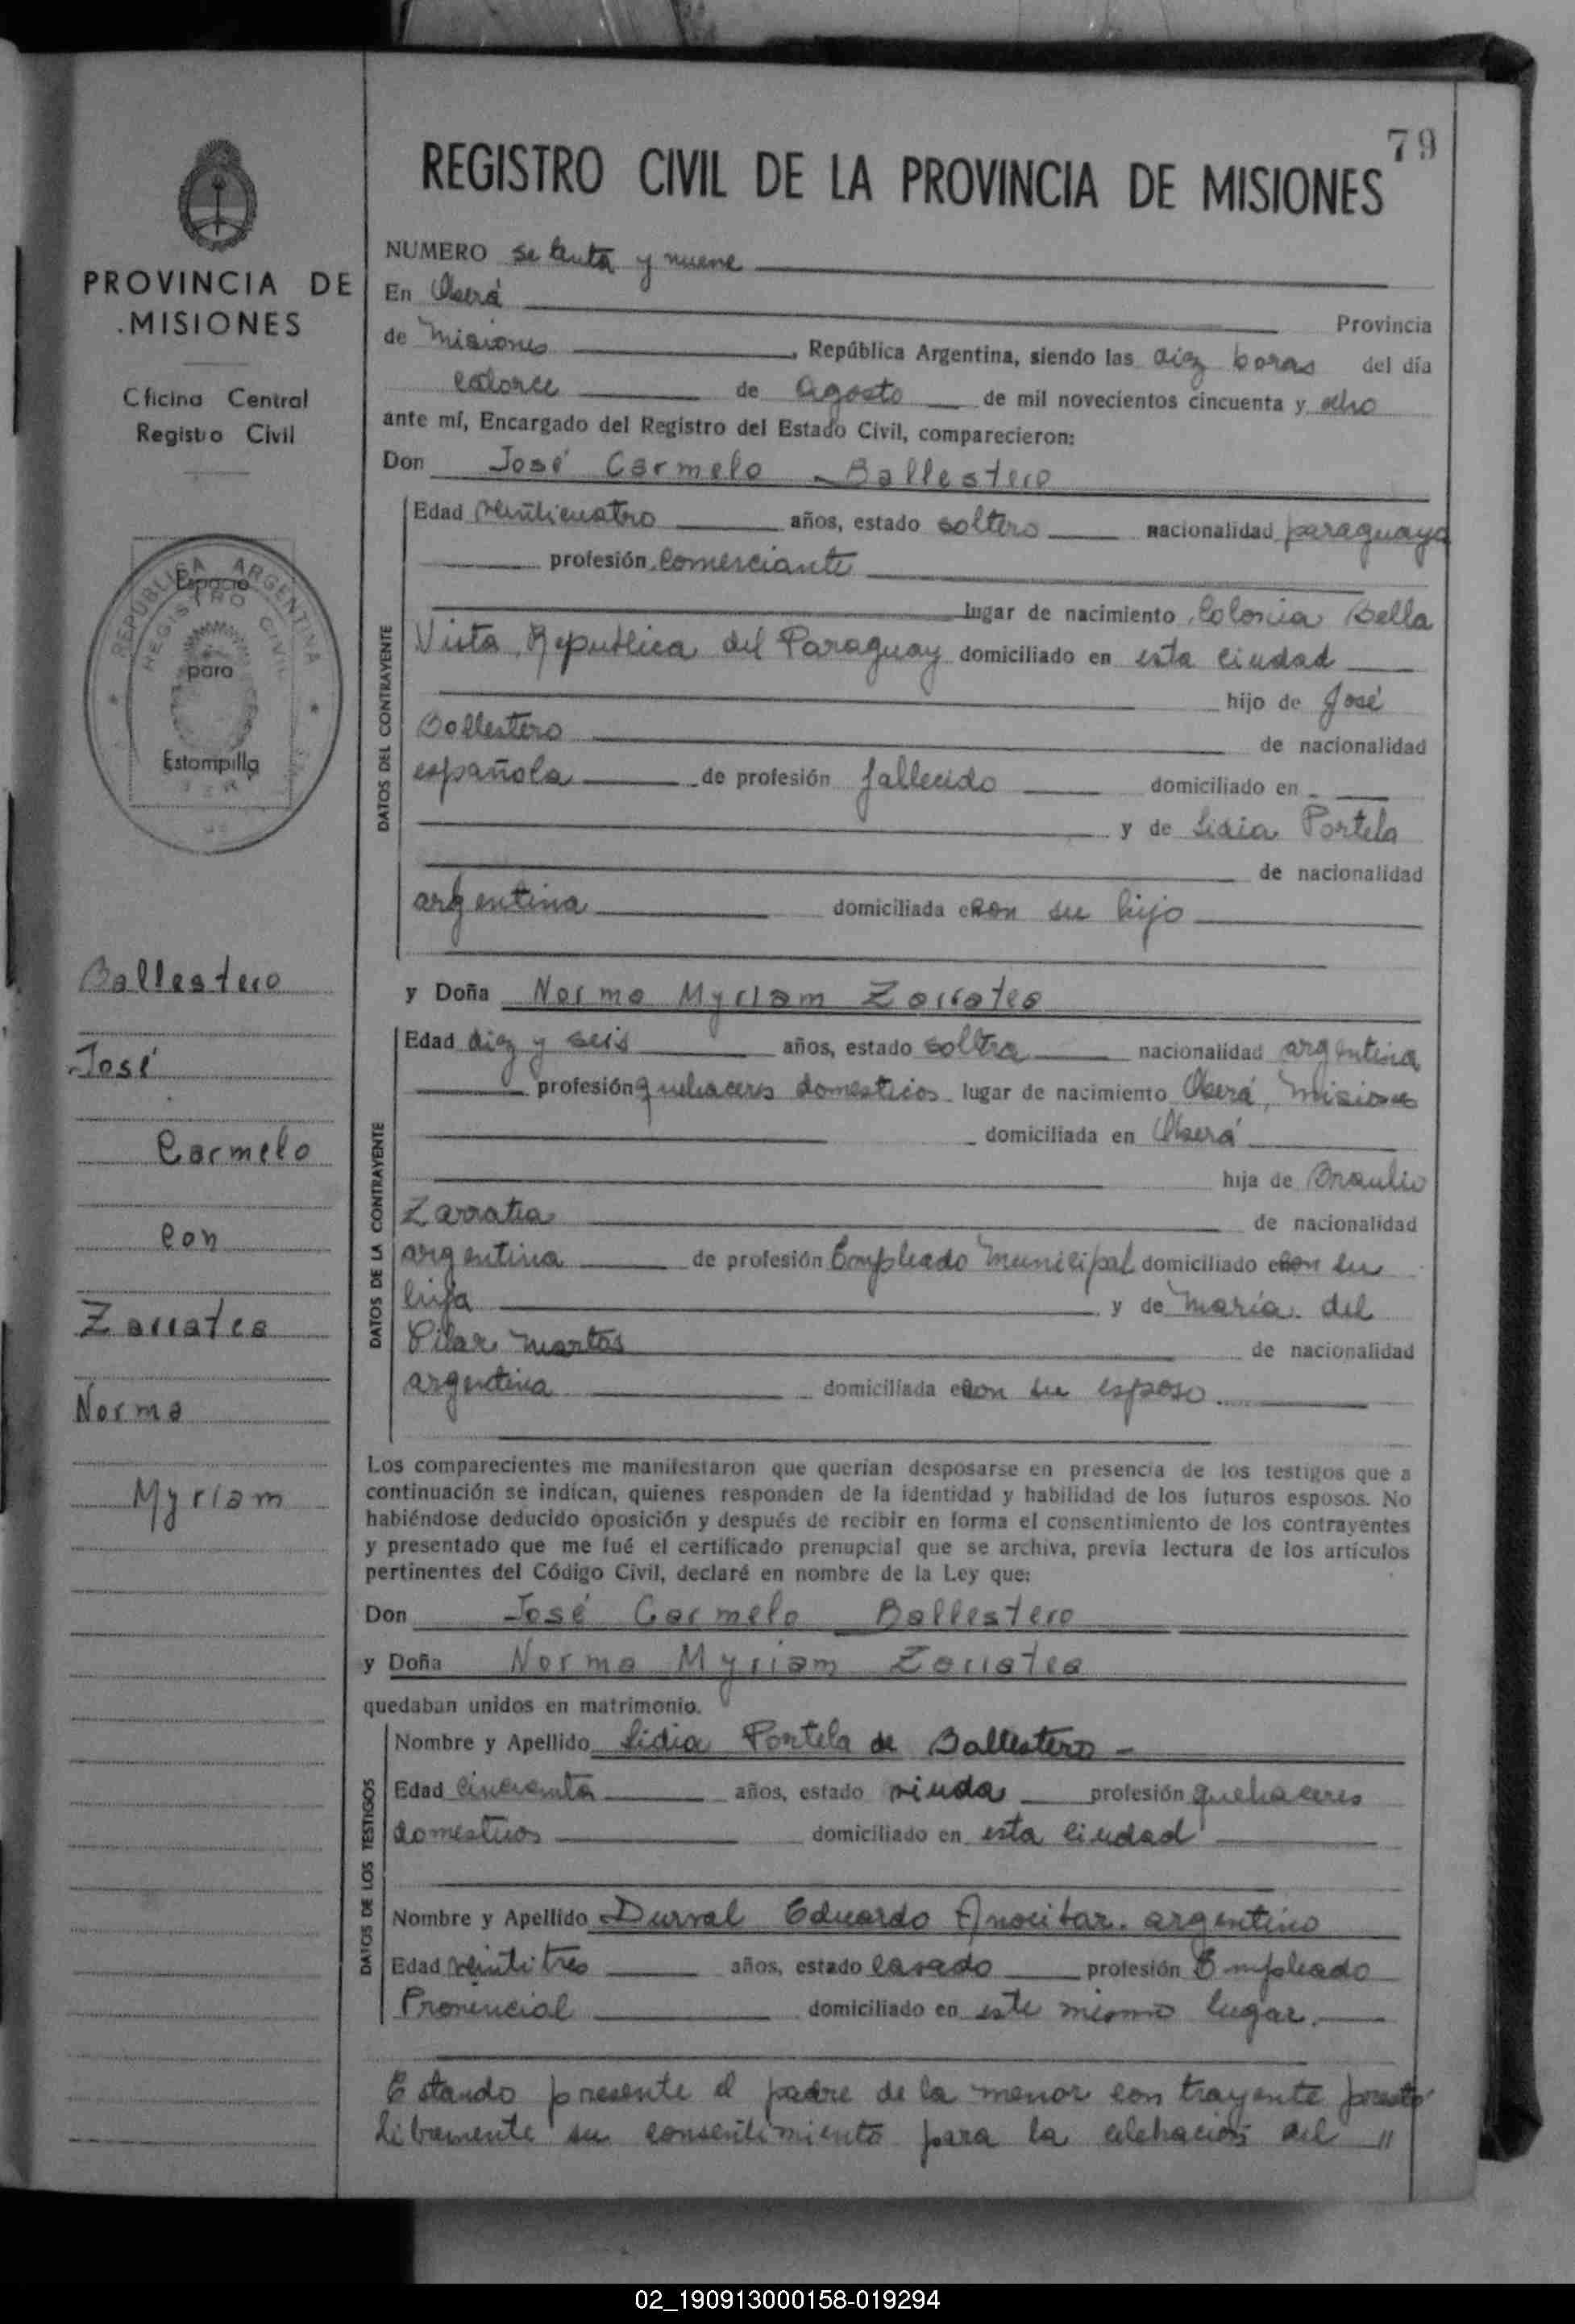 79
REGISTRO CIVIL DE LA PROVINCIA DE MISIONES
PROVINCIA DE
MISIONES
Oficina Central
Registro Civil
REPUBLICA ARGENTINA
REGISTRO CIVIL
Espacio
para
Estampilla
Ballestero
José
Carmelo
con
Zarratea
Norma
Myriam
NUMERO setenta y nueve
En Oberá
Provincia
de Misiones, República Argentina, siendo las diez horas del día
catorce de Agosto de mil novecientos cincuenta y ocho
ante mí, Encargado del Registro del Estado Civil, comparecieron:
Don José Carmelo Ballestero
DATOS DEL CONTRAYENTE
Edad veinticuatro años, estado soltero nacionalidad paraguaya
profesión comerciante
lugar de nacimiento Colonia Bella
Vista, Republica del Paraguay domiciliado en esta ciudad
hijo de José
Ballestero de nacionalidad
española de profesión fallecido domiciliado en
y de Lidia Portela
de nacionalidad
argentina domiciliada con su hijo
y Doña Norma Myriam Zarratea
DATOS DE LA CONTRAYENTE
Edad diez y seis años, estado soltra nacionalidad argentina
profesión quehaceres domesticos lugar de nacimiento Oberá, Misiones
domiciliada en Oberá
hija de Braulio
Zarratea de nacionalidad
argentina de profesión Empleado Municipal domiciliado con su
hija y de María del
Pilar de nacionalidad
argentina domiciliada con su esposo
Los comparecientes me manifestaron que querían desposarse en presencia de los testigos que a
continuación se indican, quienes responden de la identidad y habilidad de los futuros esposos. No
habiéndose deducido oposición y después de recibir en forma el consentimiento de los contrayentes
y presentado que me fué el certificado prenupcial que se archiva, previa lectura de los artículos
pertinentes del Código Civil, declaré en nombre de la Ley que:
Don José Carmelo Ballestero
y Doña Norma Myriam Zarratea
quedaban unidos en matrimonio.
DATOS DE LOS TESTIGOS
Nombre y Apellido Lidia Portela de Ballestero
Edad cincuenta años, estado viuda profesión quehaceres
domesticos domiciliado en esta ciudad
Nombre y Apellido Durval Eduardo argentino
Edad veintitres años, estado casado profesión Empleado
Provincial domiciliado en este mismo lugar.
Estando presente el padre de la menor contrayente prestó
libremente su consentimiento para la celebración del //
02_190913000158-019294